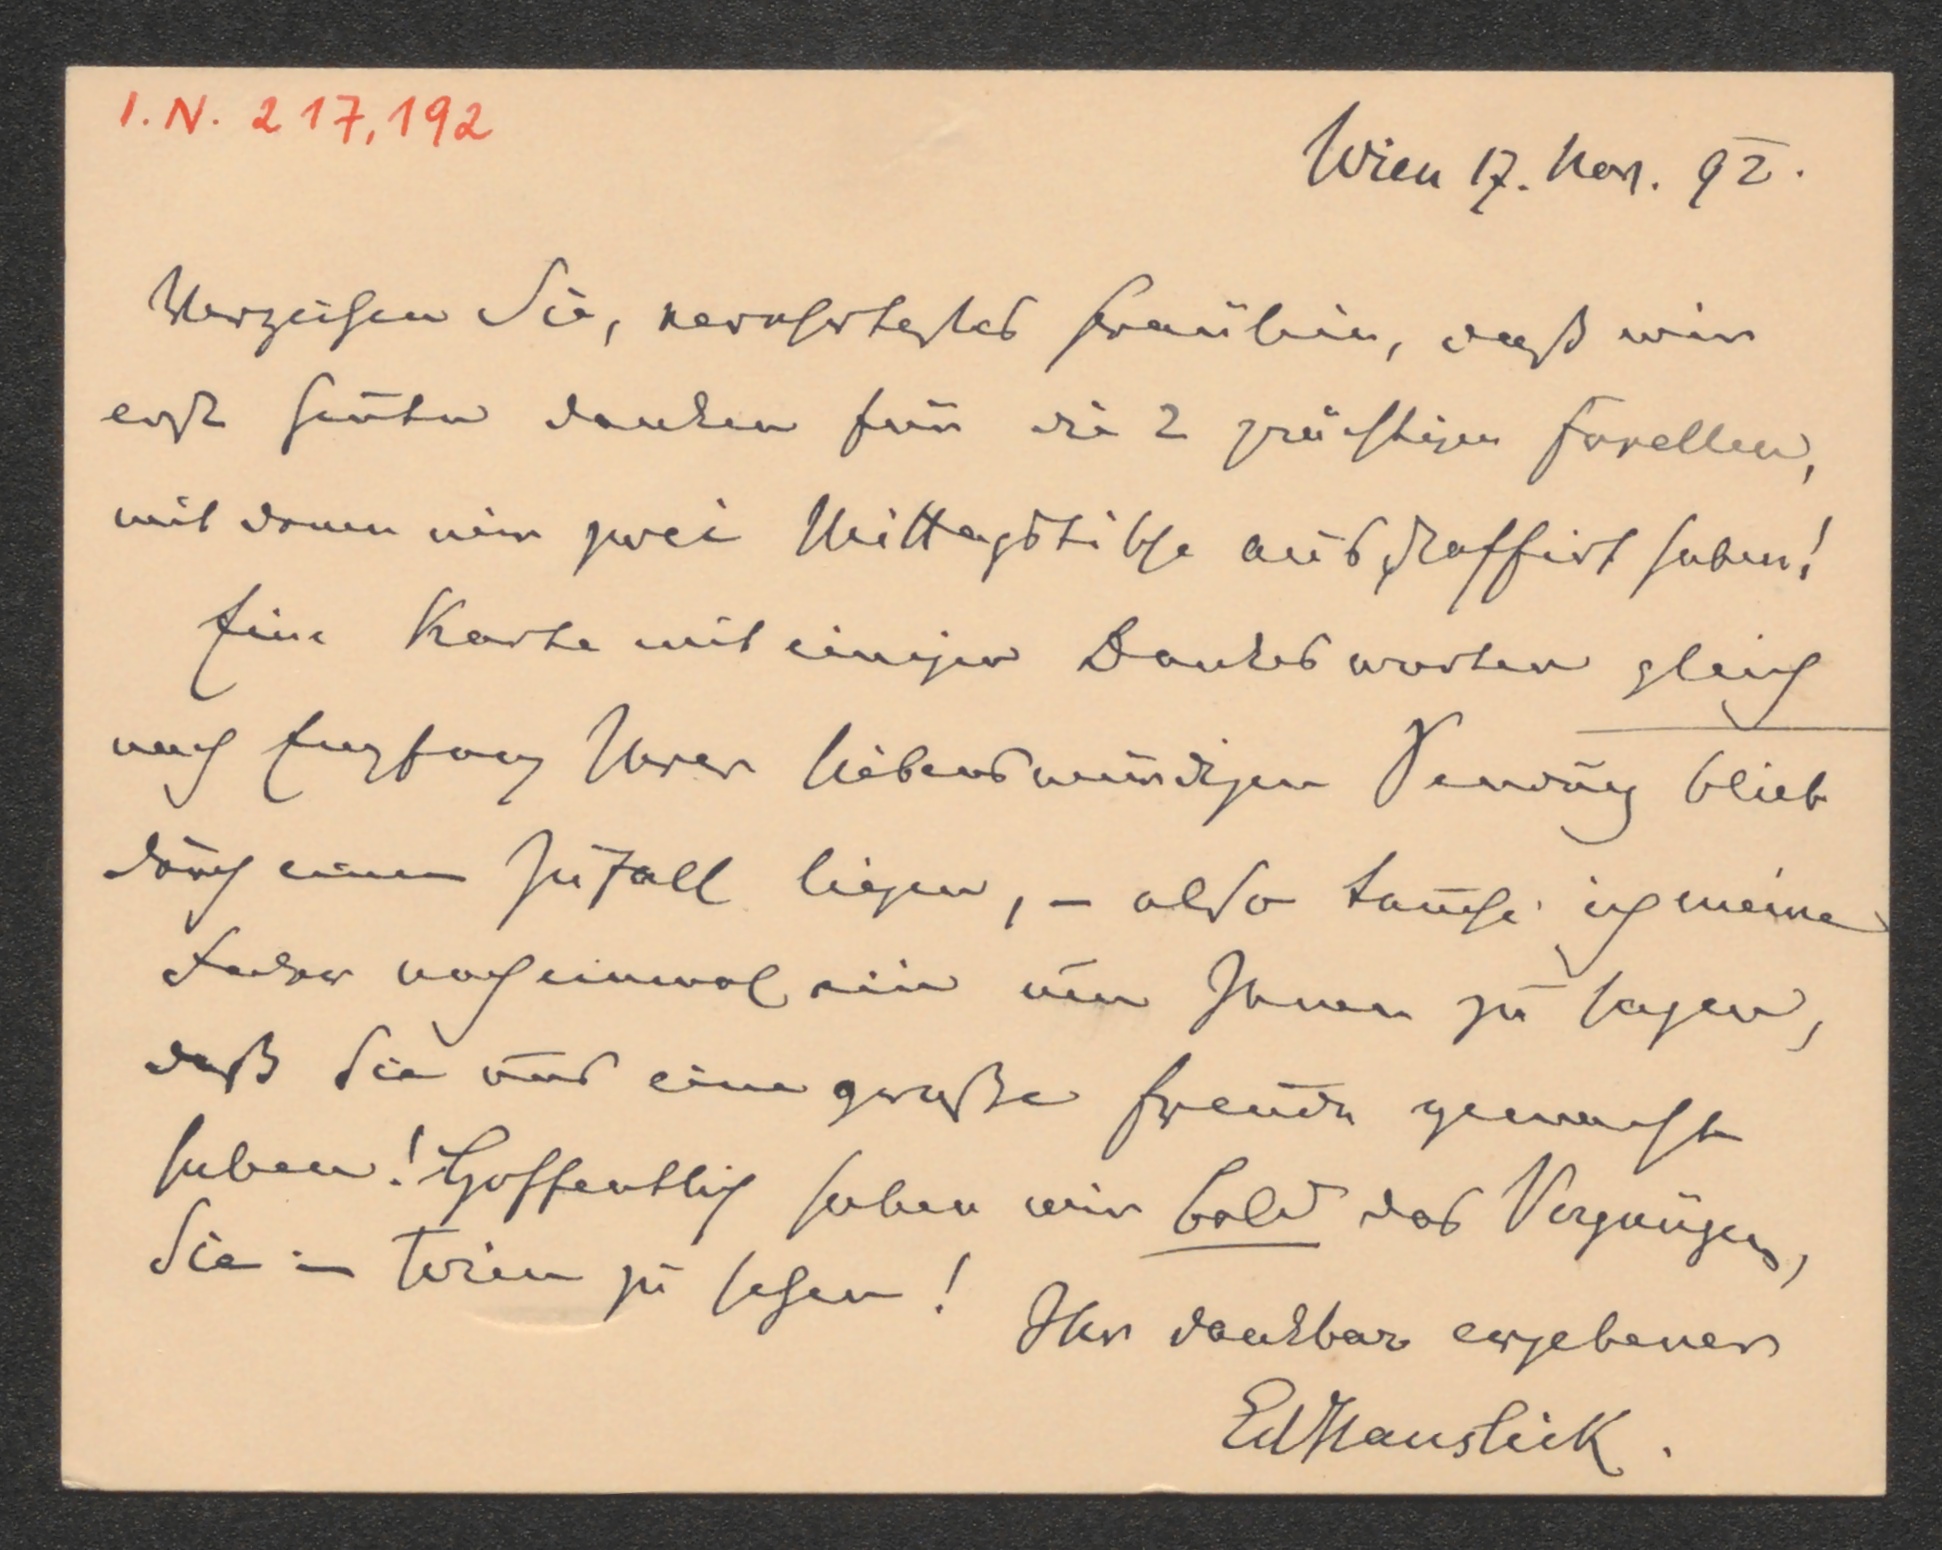 I.N. 217,192
Wien 17. Nov. 92.
Verzeihen Sie, verehrtestes Fräulein, daß wir
erst heute danken für die 2 prächtigen Forellen,
mit denen wir zwei Mittagstische ausstaffirt haben!
Eine Karte mit einigen Dankesworten gleich
nach Empfang Ihrer liebenswürdigen Sendung blieb
durch einen Zufall liegen, – also tauche ich meine
Feder noch einmal ein um Ihnen zu sagen,
daß Sie uns eine große Freude gemacht
haben! Hoffentlich haben wir bald das Vergnügen,
Sie in Wien zu sehen!
Ihr dankbar ergebener
EdHanslick.